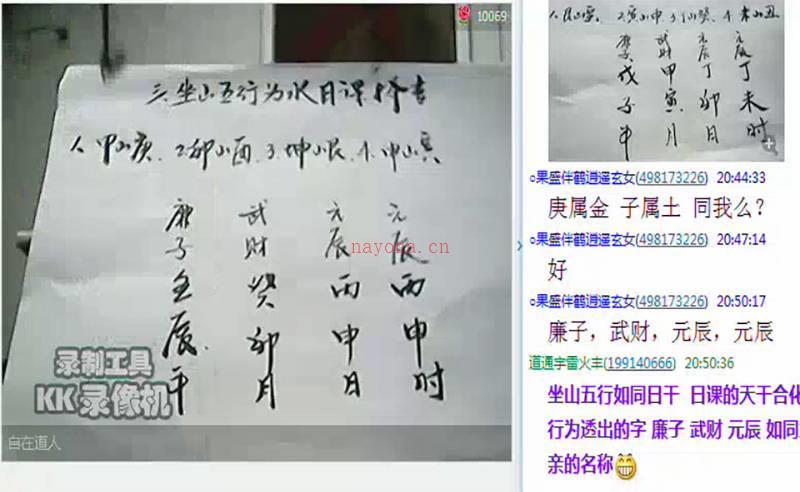 10069
三.坐山五行为水日课择吉
1.甲山庚. 2.卯山酉. 3.坤山艮. 4.申山寅
廉子壬辰年
武财癸卯月
元辰丙申日
元辰丙申时
nayona.cn
录制工具
KK 录像机
自在道人
廉子戊子年
武财甲寅月
元辰丁卯日
元辰丁未时
果盛伴鹤逍遥玄女(498173226) 20:44:33
庚属金 子属土 同我么？
果盛伴鹤逍遥玄女(498173226) 20:47:14
好
果盛伴鹤逍遥玄女(498173226) 20:50:17
廉子，武财，元辰，元辰
道通宇雷火丰(199140666) 20:50:36
坐山五行如同日干 日课的天干合化
行为透出的字 廉子 武财 元辰 如同
亲的名称